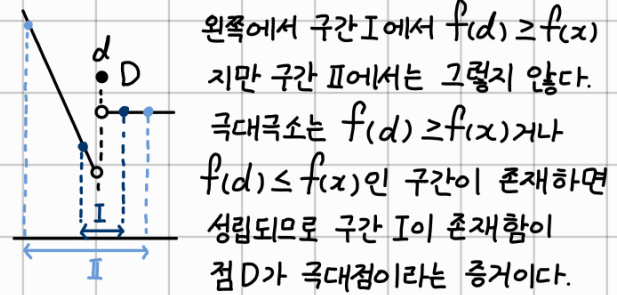 왼쪽에서 구간 I에서 f(d) ≥ f(x)
d
D
지만 구간 II에서는 그렇지 않다.
극대극소는 f(d) ≥ f(x)거나
f(d) ≤ f(x)인 구간이 존재하면
I
성립되므로 구간 I이 존재함이
II
점 D가 극대점이라는 증거이다.